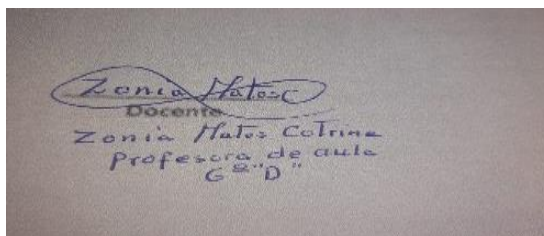 Zonia Matos C
Docente
Zonia Matos Cotrina
Profesora de aula
6º "D"